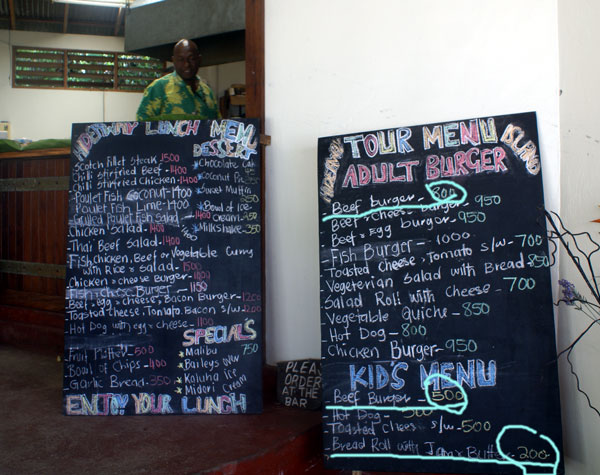 LUNCH MENU
DESSERT
Scotch fillet Steak 1500
Chilli Stirfried Beef - 1400
Chilli Stirfried Chicken - 1400
Poulet Fish Coconut - 1400
Poulet Fish Lime - 1400
Grilled Poulet Fish Salad - 1400
Chicken Salad - 1400
Thai Beef Salad - 1400
Fish, Chicken, Beef or Vegetable Curry
with Rice & Salad - 1500
Chicken & cheese Burger - 1100
Fish & cheese Burger - 1150
Beef, egg & cheese, Bacon Burger - 1200
Toasted Cheese, Tomato, Bacon s/w - 1200
Hot Dog with egg & cheese - 1100
Fruit Platter - 500
Bowl of Chips - 400
Garlic Bread - 350
* Chocolate Cake
* Coconut Pie
950
* Sweet Muffin
350
* Bowl of Ice
Cream - 950
* Milkshake - 350
SPECIALS
* Malibu 750
* Baileys NEW
* Kaluha ice
* Midori Cream
ENJOY YOUR LUNCH
PLEASE
ORDER
AT THE
BAR
TOUR MENU
ISLAND
ADULT BURGER
Beef burger - 800
- Beef & Cheese Burger - 950
- Beef & Egg burger - 950
- Fish Burger - 1000
- Toasted Cheese & Tomato s/w - 700
- Vegeterian Salad with Bread 850
- Salad Roll with Cheese - 700
- Vegetable Quiche - 850
- Hot Dog - 800
- Chicken Burger - 950
KID'S MENU
- Beef Burger - 500
- Hot Dog - 500
- Toasted Chees s/w - 500
- Bread Roll with Jam & Butter - 200